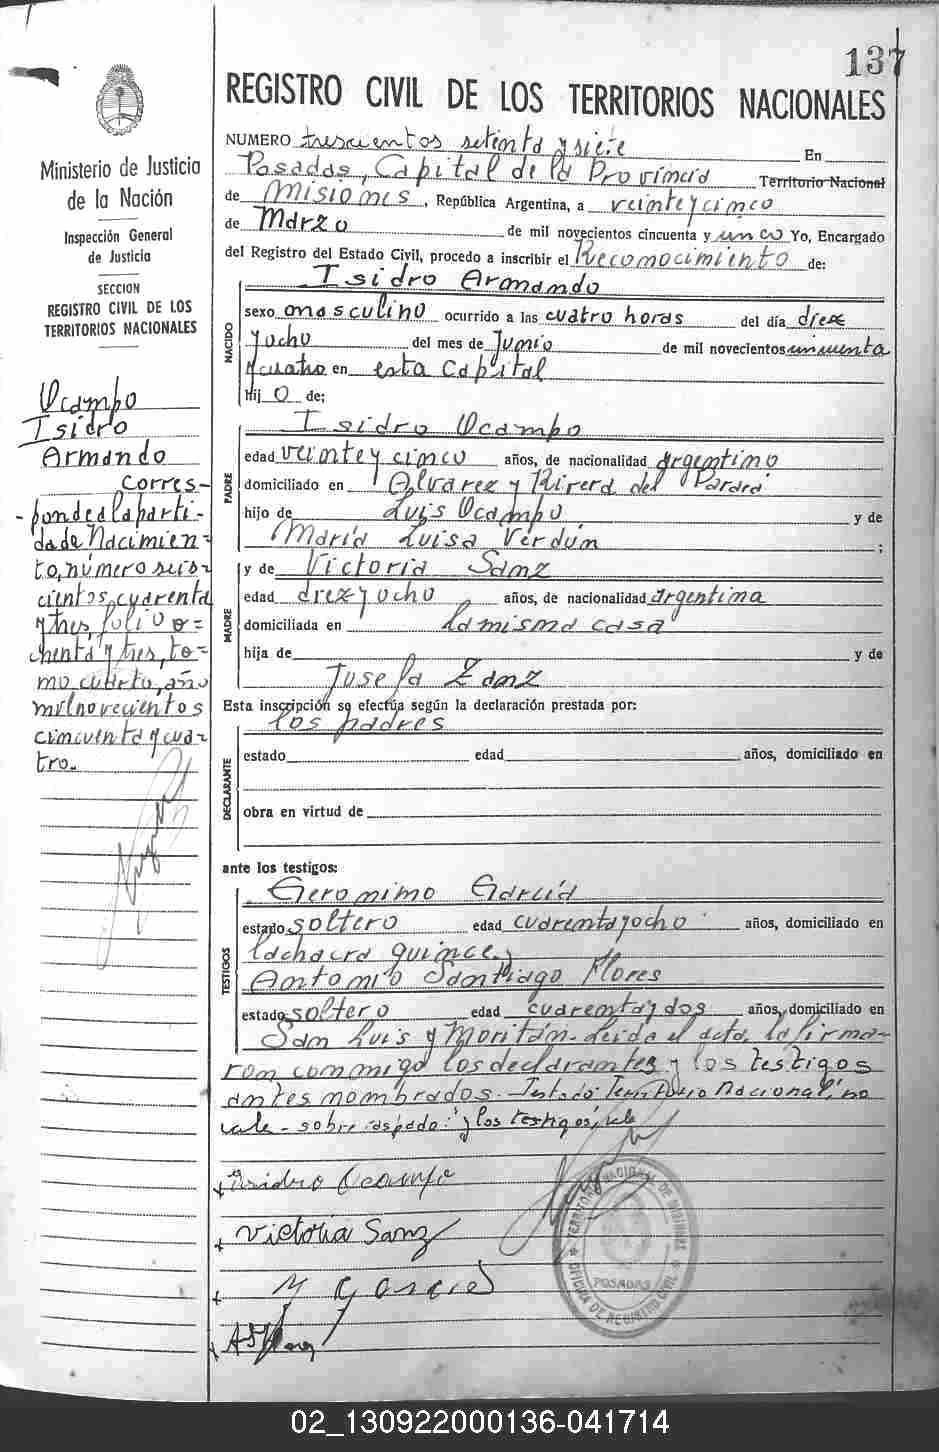 137
REGISTRO CIVIL DE LOS TERRITORIOS NACIONALES
Ministerio de Justicia
de la Nación
Inspección General
de Justicia
SECCION
REGISTRO CIVIL DE LOS
TERRITORIOS NACIONALES
Ocampo
Isidro
Armando
corres-
ponde a la parti-
da de Nacimien-
to, número seis-
cientos, cuarenta
y tres, folio o=
chenta y tres, to=
mo cuarto, año
mil novecientos
cincuenta y cua-
tro.
NUMERO trescientos setenta y siete En
Posadas, Capital de la Provincia Territorio Nacional
de Misiones, República Argentina, a veinte y cinco
de Marzo de mil novecientos cincuenta y un co Yo, Encargado
del Registro del Estado Civil, procedo a inscribir el Reconocimiento de:
Isidro Armando
NACIDO
sexo masculino ocurrido a las cuatro horas del día diez
y ocho del mes de Junio de mil novecientos cincuenta
y cuatro en esta Capital
Hij o de:
PADRE
Isidro Ocampo
edad veinte y cinco años, de nacionalidad argentino
domiciliado en Alvarez y Rivera del Paraná
hijo de Luis Ocampo y de
María Luisa Verdún ;
MADRE
y de Victoria Sanz
edad diez y ocho años, de nacionalidad argentina
domiciliada en la misma casa
hija de y de
Josefa Zanz
Esta inscripción se efectúa según la declaración prestada por:
los padres
DECLARANTE
estado edad años, domiciliado en
obra en virtud de
ante los testigos:
TESTIGOS
Geronimo Garcia
estado soltero edad cuarenta y ocho años, domiciliado en
la chacra quince y
Antonio Santiago Flores
estado soltero edad cuarenta y dos años, domiciliado en
San Luis y Moritán. Leida el acta, la firma-
ron conmigo los declarantes y los testigos
antes nombrados. Testado: Territorio Nacional, no
vale - sobre raspado: "y los testigos, vale
Isidro Ocampo
Victoria Sanz
Garcia
TERRITORIO NACIONAL DE MISIONES
POSADAS
OFICINA DE REGISTRO CIVIL
02_130922000136-041714